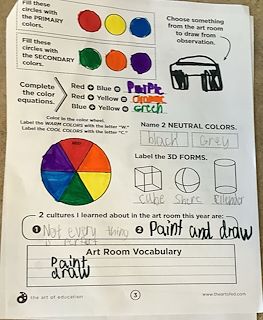 Fill these
circles with
the PRIMARY
colors.
Fill these
circles with
the SECONDARY
colors.
Choose something
from the art room
to draw from
observation.
Complete
the color
equations.
Red + Blue = Purple
Red + Yellow = orange
Blue + Yellow = Green
Color in the color wheel.
Label the WARM COLORS with the letter "W."
Label the COOL COLORS with the letter "C."
RED
Name 2 NEUTRAL COLORS.
black Grey
Label the 3D FORMS.
Cube
2 cultures I learned about in the art room this year are:
1 Not every thing
is perfect
2 Paint and draw
Art Room Vocabulary
Paint
draw
the art of education
3
www.theartofed.com